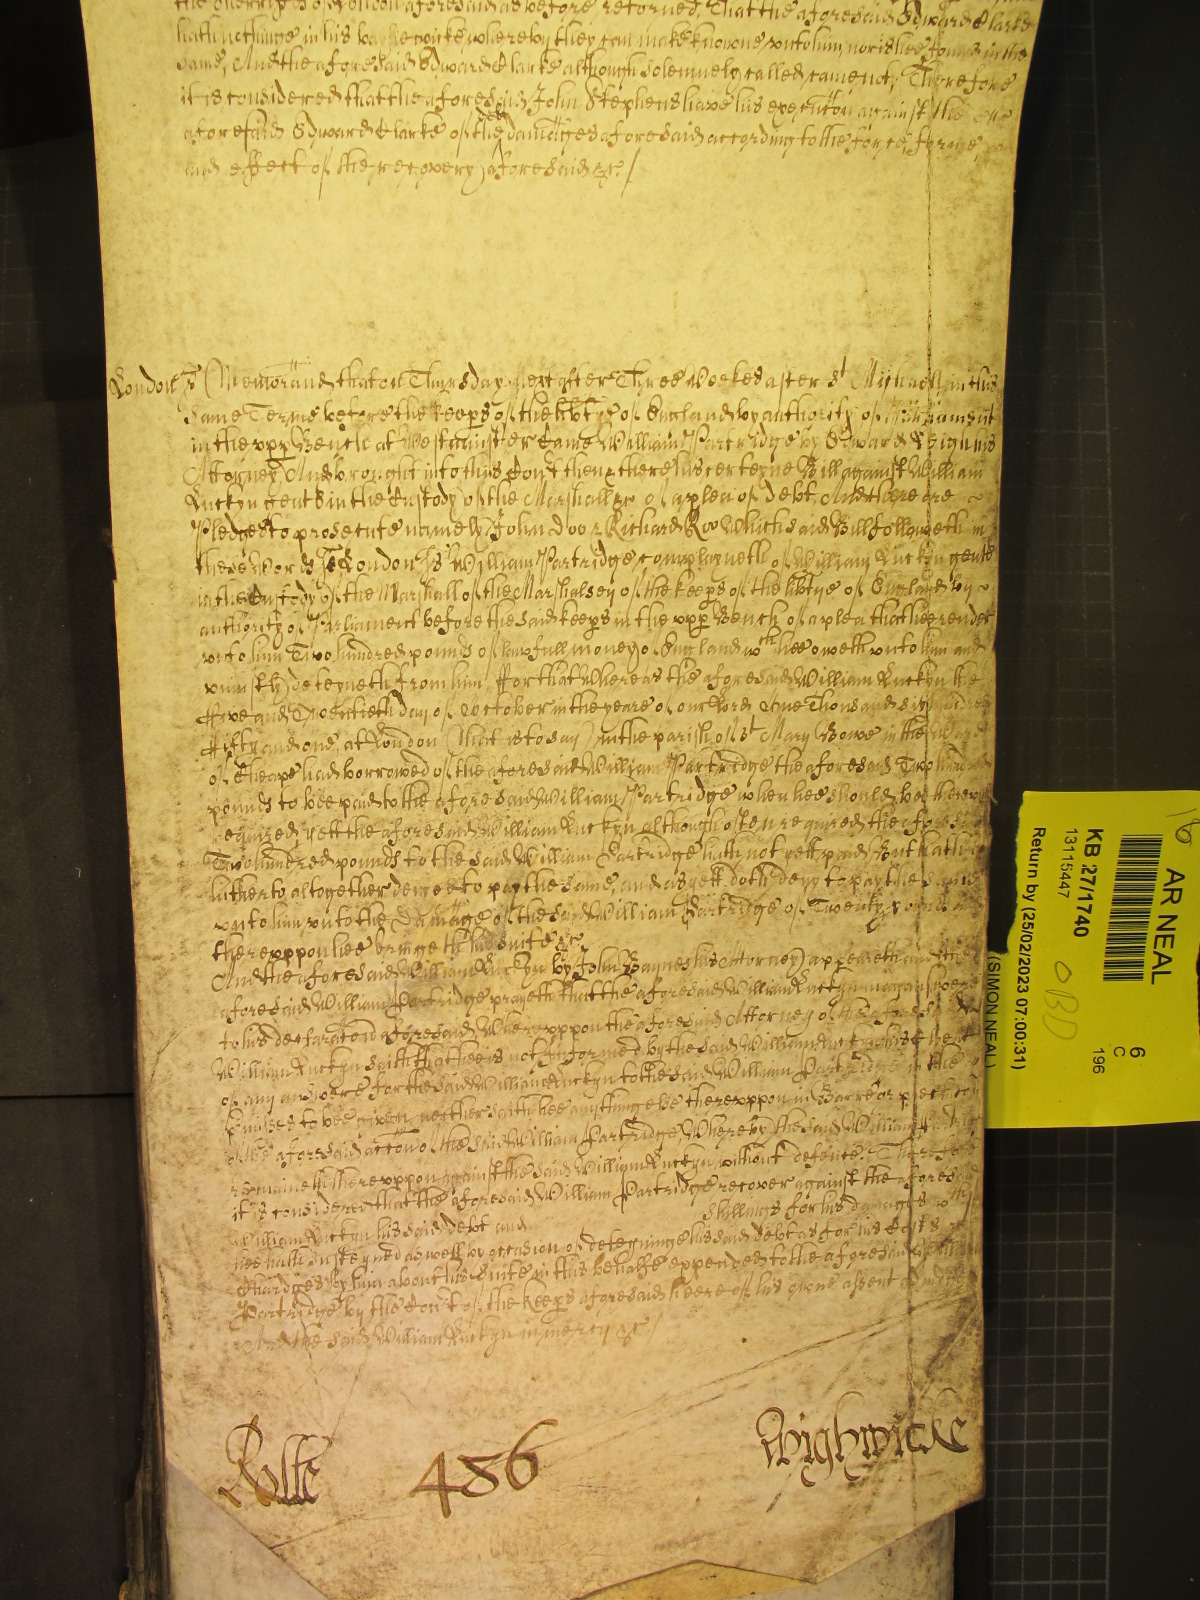 the Sherriffs of London aforesaid as before returned, That the aforesaid Edward Clarke
hath nothinge in his baylewicke whereby they can make knowne vnto him, nor is hee found in the
same, And the aforesaid Edward Clarke although solemnely called came not, Therefore
it is considered that the aforesaid John Stephens have his execution against the
aforesaid Edward Clarke of the damages aforesaid according to the force, forme,
and effect of the recovery aforesaid &c /
London ss Memorand that on Thursday next after Three Weekes after St Michaell in this
same Terme before the keeps of the libtye of England by authority of Parliament
in the vpp Bench at Westminster Came William Partridge by Edward
Attorney And brought into this Cort then & there his certeyne Bill against William
Luckyn gent in the Custody of the Marshall &c of a plea of debt And there are
Pledges to prosecute namely John Doo & Richard Roo Which said Bill followeth in
these Words London ss William Partridge complayneth of William Luckyn gent
in the Custody of the Marshall of the Marshalsey of the keeps of the libtye of England by
authority of Parliament before the said keeps in the vpp Bench of a plea that hee render
vnto him Two hundred pounds of lawfull money of England wch hee oweth vnto him and
vniustly deteyneth from him For that Whereas the aforesaid William Luckyn the
Five and Twentieth day of October in the yeare of our Lord One Thousand six hundred
Fifty and one, at London (that is to say) in the parish of St Mary Bowe in the Ward
of Cheape had borrowed of the aforesaid William Partridge the aforesaid Two hundred
pounds to bee paid to the aforesaid William Partridge when hee should bee therevnto
required, yett the aforesaid William Luckyn although often required the aforesaid
Two hundred pounds to the said William Partridge hath not yett paid, But hath
hitherto altogether denyed to pay the same, and as yett doth deny to pay the same
vnto him vnto the Damage of the said William Partridge of Twenty pounds and
therevppon hee bringeth his suite &c
And the aforesaid William Luckyn by John Baynes his Attorney appeareth and the
aforesaid William Partridge prayeth that the aforesaid William Luckyn may answere
to his declaration aforesaid Wherevppon the aforesaid Attorney of the aforesaid
William Luckyn saith that hee is not Informed by the said William Luckyn his Client
of any answere for the said William Luckyn to the said William Partridge in the
pmises to bee given, neither saith hee anything else therevppon in Barre or preclusion
of the aforesaid action of the said William Partridge Whereby the said William Partridge
remaineth therevppon against the said William Luckyn, without defence. Therefore
it is considered that the aforesaid William Partridge recover against the aforesaid
William Luckyn his said debt and shillings for his damages wch
hee hath susteyned aswell by occasion of deteyninge his said debt as for his Costs and
Chardges by him about his Suite in this behalfe expended to the aforesaid William
Partridge by the Cort of the keeps aforesaid heere of his owne assent adiudged
And the said William Luckyn in mercy &c /
Rolle 486 Wightwicke
18
AR NEAL
KB 27/1740
13115447
Return by (25/02/2023 07:00:31)
(SIMON NEAL)
OBD
6
C
196